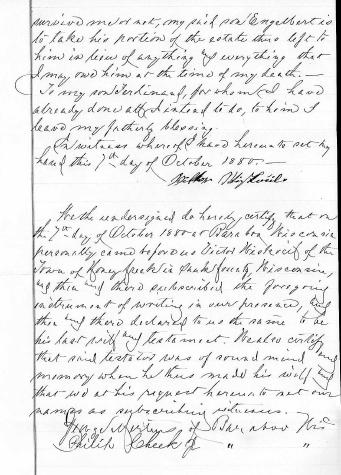 survive me or not, my said son Engelbert is
to take his portion of the estate thus left to
him in lieu of anything & everything that
I may owe him at the time of my death.—
To my son Ferdinand, for whom I have
already done all I intend to do, to him I
leave my fatherly blessing.
In witness whereof I have hereunto set my
hand this 7th day of October 1880.—
We the undersigned do hereby certify that on
the 7th day of October 1880 at Baraboo Wisconsin
personally came before us Victor of the
Town of Honey Creek in Sauk County, Wisconsin,
and then and there subscribed the foregoing
instrument of writing in our presence, and
then and there declared to us the same to be
his last will and testament. We also certify
that said testator was of sound mind and
memory when he thus made his will, and
that we at his request hereunto set our
names as subscribing witnesses.
George Mertens of Baraboo Wis
Philip Cheek Jr " "